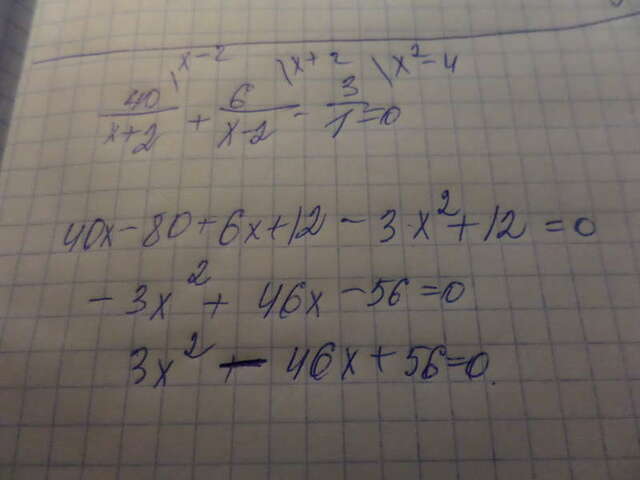 \x-2 \x+2 \x²-4
40/x+2 + 6/x-2 - 3/1 = 0
40x-80+6x+12-3·x²+12=0
-3x²+46x-56=0
3x²-46x+56=0.